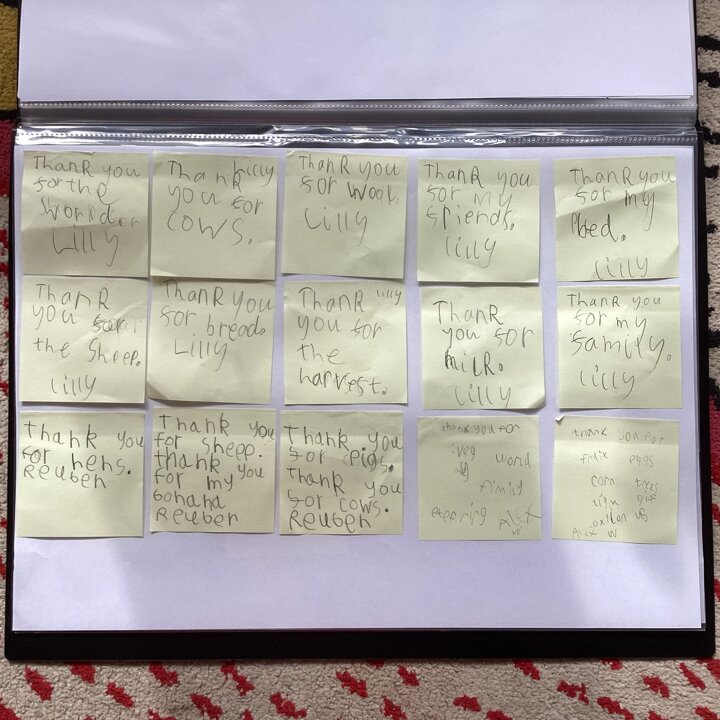 ThanR you
for the
World
Lilly
Lilly
Thank
you for
cows.
ThanR you
for wool.
Lilly
ThanR you
for my
friends.
Lilly
ThanR you
for my
bed.
Lilly
ThanR
you for
the sheep.
Lilly
ThanR you
for bread.
Lilly
ThanR Lilly
you for
the
harvest.
ThanR
you for
milR.
Lilly
ThanR you
for my
family.
Lilly
thank you
for hens.
Reuben
thank you
for sheep.
thank you
for my
bohaha
Reuben
Thank you
for pigs.
Thank you
for cows.
Reuben
thank you for
world
fimily
thank you for
eggs
corn